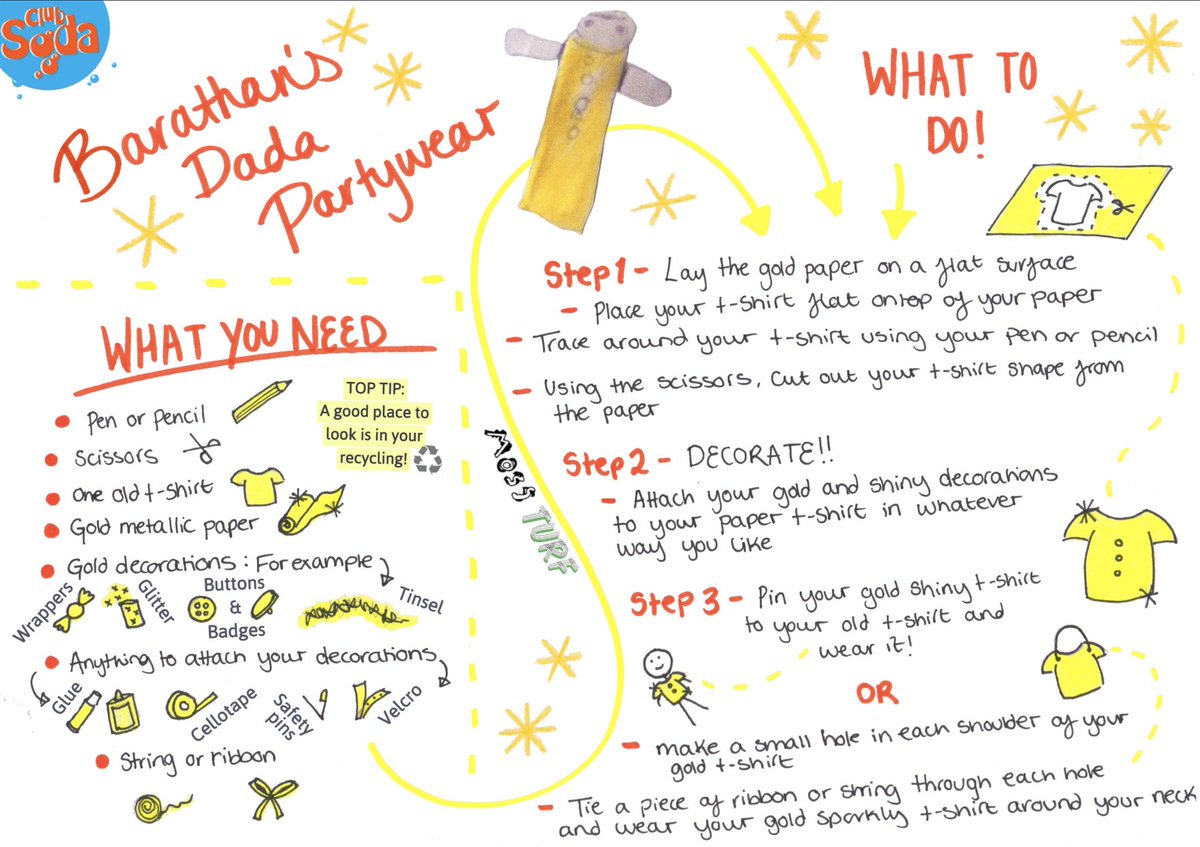 Club
Soda
Barathan's
Dada
Partywear
WHAT YOU NEED
Pen or Pencil
Scissors
One old t-shirt
Gold metallic paper
TOP TIP:
A good place to
look is in your
recycling!
Gold decorations: For example
Wrappers
Glitter
Buttons
&
Badges
Tinsel
Anything to attach your decorations
Glue
Cellotape
Safety
pins
Velcro
String or ribbon
Mossy
TURF
WHAT TO
DO!
Step 1 - Lay the gold paper on a flat surface
- Place your t-shirt flat ontop of your paper
- Trace around your t-shirt using your pen or pencil
- Using the scissors, cut out your t-shirt shape from
the paper
Step 2 - DECORATE!!
- Attach your gold and shiny decorations
to your paper t-shirt in whatever
way you like
Step 3 - Pin your gold shiny t-shirt
to your old t-shirt and
wear it!
OR
- make a small hole in each shoulder of your
gold t-shirt
- Tie a piece of ribbon or string through each hole
and wear your gold sparkly t-shirt around your neck